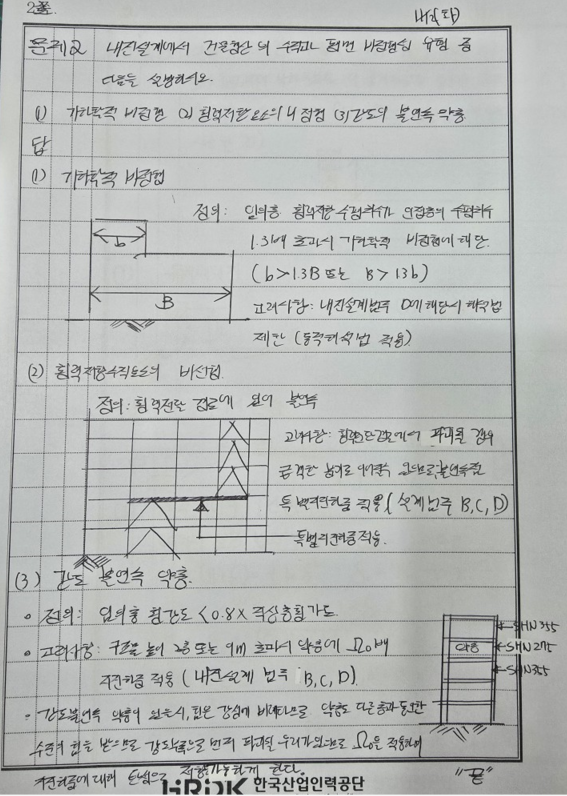 내진(화)
문제2 내진설계에서 건축물산의 수직과 평면 비정형성 유형 중
다음을 설명하시오.
(1) 기하학적 비정형 (2) 횡력저항요소의 비정형 (3) 강도의 불연속 약층
답
(1) 기하학적 비정형
정의: 임의층 횡력저항 수평치수가 인접층의 수평치수
1.3배 초과시 기하학적 비정형에 해당
b
B
(b>1.3B 또는 B>1.3b)
고려사항: 내진설계범주 D에 해당시 해석법
제한 (동적해석법 적용)
(2) 횡력저항수직요소의 비정형
정의: 횡력전달 경로에 있어 불연속
고려사항:
특별지진하중 적용 (설계범주 B,C,D)
특별지진하중적용
(3) 강도 불연속 약층
• 정의: 임의층 횡강도 < 0.8× 직상층횡강도
• 고려사항: 구조물 높이 2층 또는 9m 초과시 약층에 Ω₀배
지진하중 적용 (내진설계 범주 B,C,D)
SHN355
약층
SHN275
SHN355
- 강도불연속 약층이 있는시, 힘은 강성에 비례하므로 약층도 다른층과 동일한
수준의 힘을 받으므로 강도부족으로 먼저 파괴될 우려가있으므로 Ω₀을 적용하여
지진하중에 대해 저항가능하게 한다.
"끝"
HRDK 한국산업인력공단